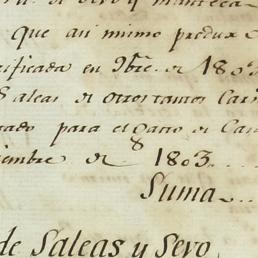 de Sevo y manteca
que asi mismo produx
rificada en 9bre. de 180
Saleas de otros tantos Car
tado para el gasto de Ca
iembre de 1803
Suma
de Saleas y Sevo,